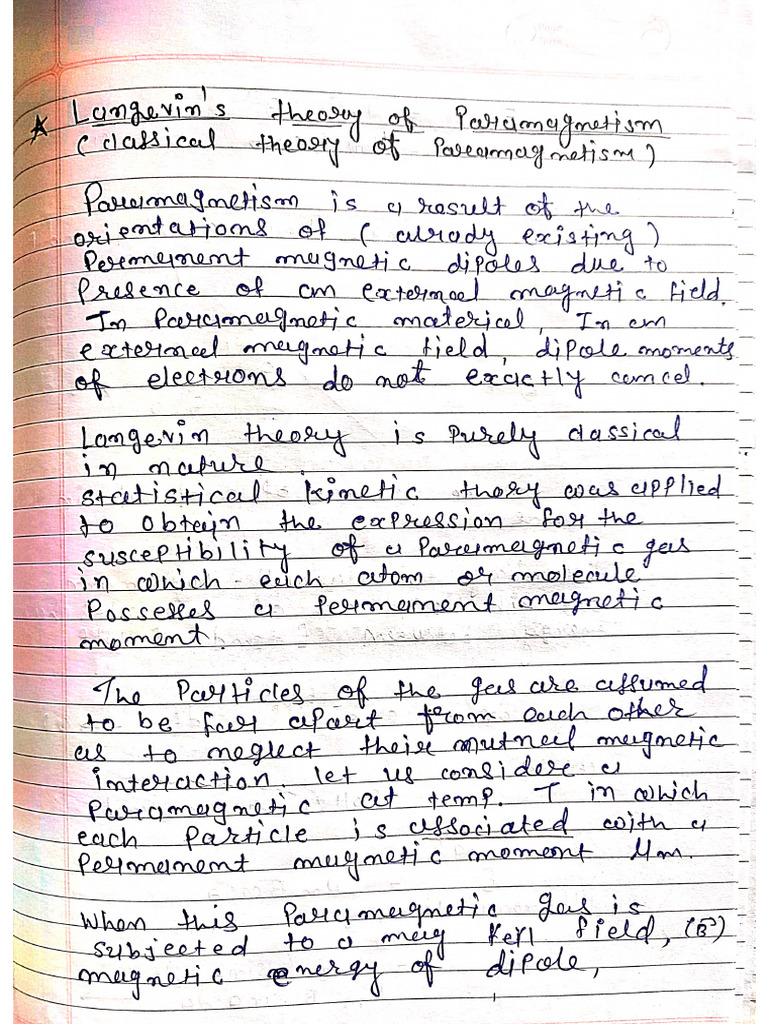 Langevin's theory of Paramagnetism
(classical theory of Paramagnetism)
Paramagnetism is a result of the
orientations of (alrady existing)
Permanent magnetic dipoles due to
Presence of an external magnetic field.
In Paramagnetic material, In an
external magnetic field, dipole moments
of electrons do not exactly cancel.
Langevin theory is Purely classical
in nature.
statistical kinetic thory was applied
to obtain the expression for the
susceptibility of a Paramagnetic gas
in which each atom or molecule
Possesses a Permanent magnetic
moment.
The Particles of the gas are assumed
to be far apart from each other
as to neglect their mutual magnetic
interaction. let us consider a
Paramagnetic at temp. T in which
each Particle is associated with a
Permanent magnetic moment μm.
When this Paramagnetic gas is
subjected to a mag field, (B⃗)
magnetic energy of dipole,